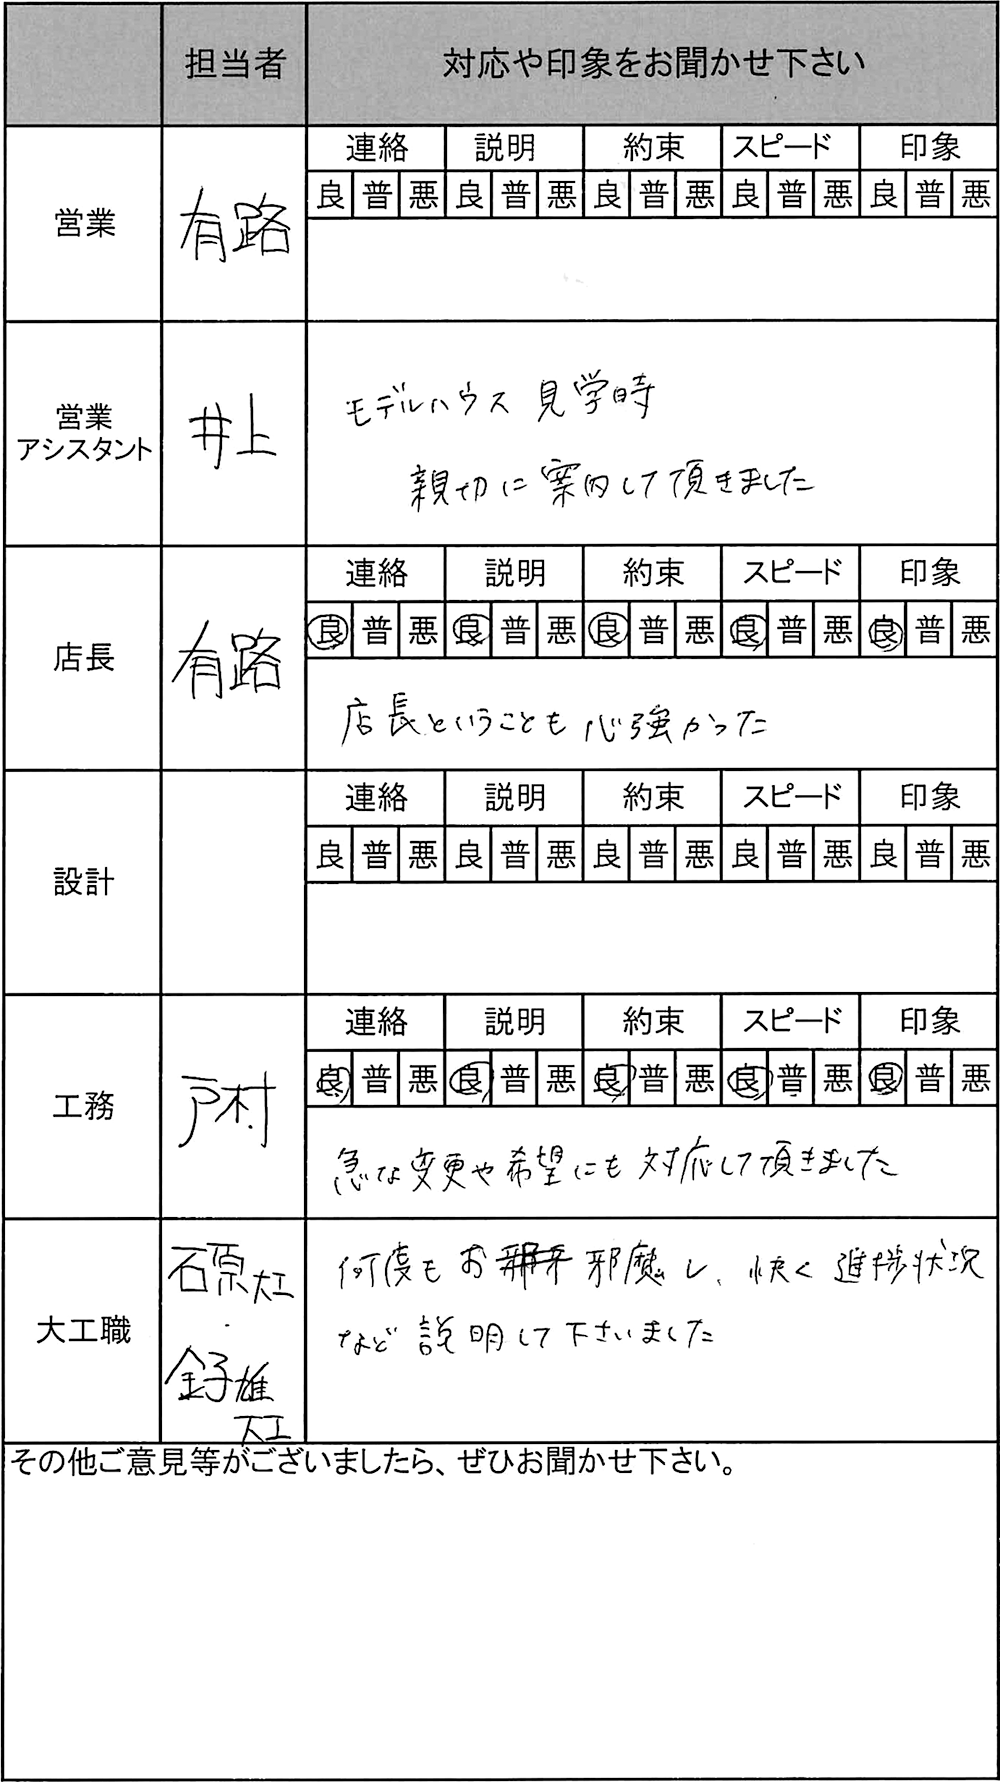 担当者 対応や印象をお聞かせ下さい
営業 有路
連絡 説明 約束 スピード 印象
良 普 悪 良 普 悪 良 普 悪 良 普 悪 良 普 悪
営業
アシスタント
井上
モデルハウス 見学時
親切に案内して頂きました
店長 有路
連絡 説明 約束 スピード 印象
良 普 悪 良 普 悪 良 普 悪 良 普 悪 良 普 悪
店長ということも心強かった
設計
連絡 説明 約束 スピード 印象
良 普 悪 良 普 悪 良 普 悪 良 普 悪 良 普 悪
工務 戸村
連絡 説明 約束 スピード 印象
良 普 悪 良 普 悪 良 普 悪 良 普 悪 良 普 悪
急な変更や希望にも対応して頂きました
大工職
石原大工
・
金子雄
大工
何度もお邪魔し、快く進捗状況
など説明して下さいました
その他ご意見等がございましたら、ぜひお聞かせ下さい。